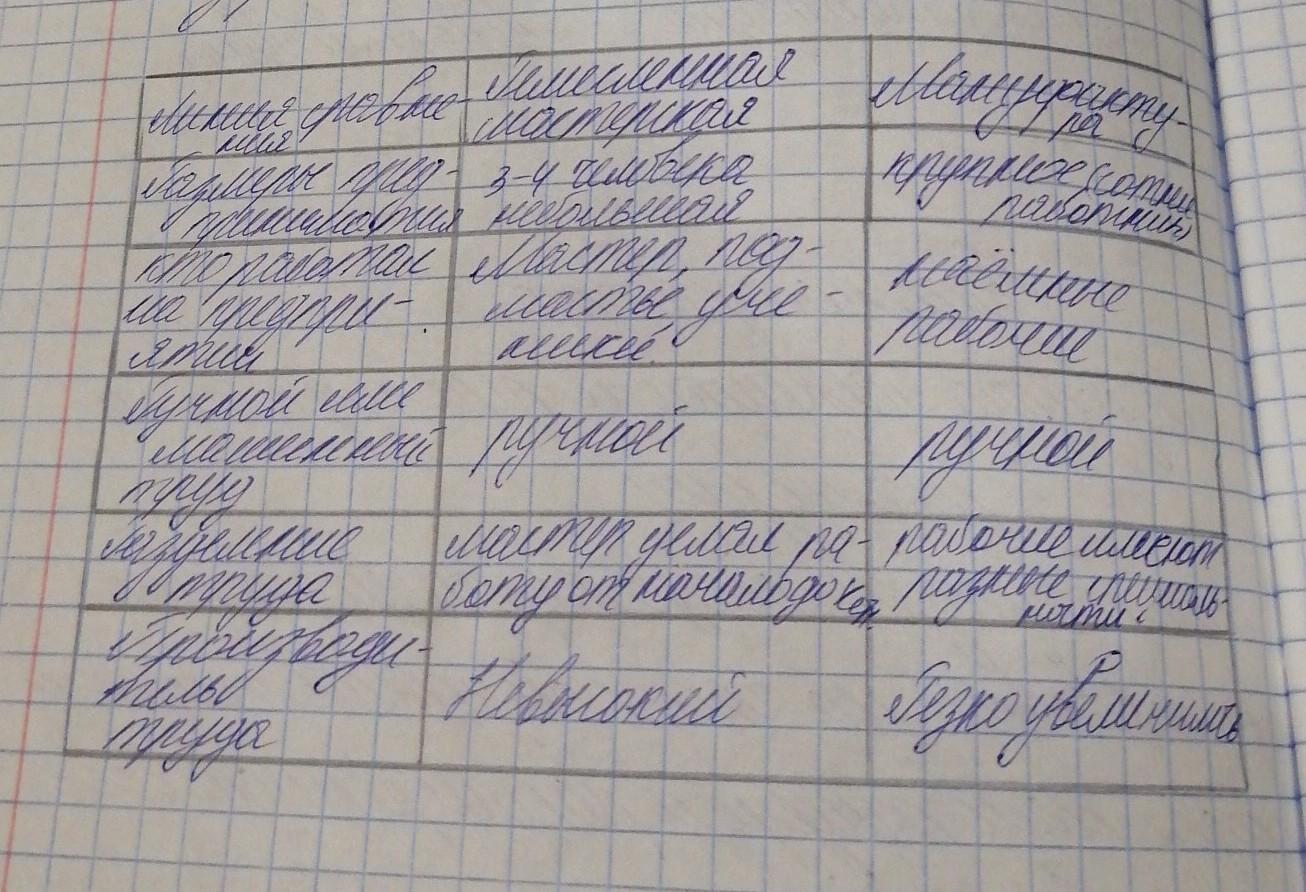 Линия сравне-
ния
Ремесленная
мастерская
Мануфакту-
ра
Размеры пред-
приниматия
3-4 человека
небольшая
крупное (сотни
работник)
кто работал
на предпри-
ятии
Мастер, под-
мастье, уче-
ники
наёмные
рабочие
Ручной или
машинный
труд
ручной
ручной
Разделение
труда
мастер делал ра-
боту от начала до кон.
рабочие имеют
разные специаль-
ности.
Производи-
тель
труда
Невысокий
Резко увеличилась